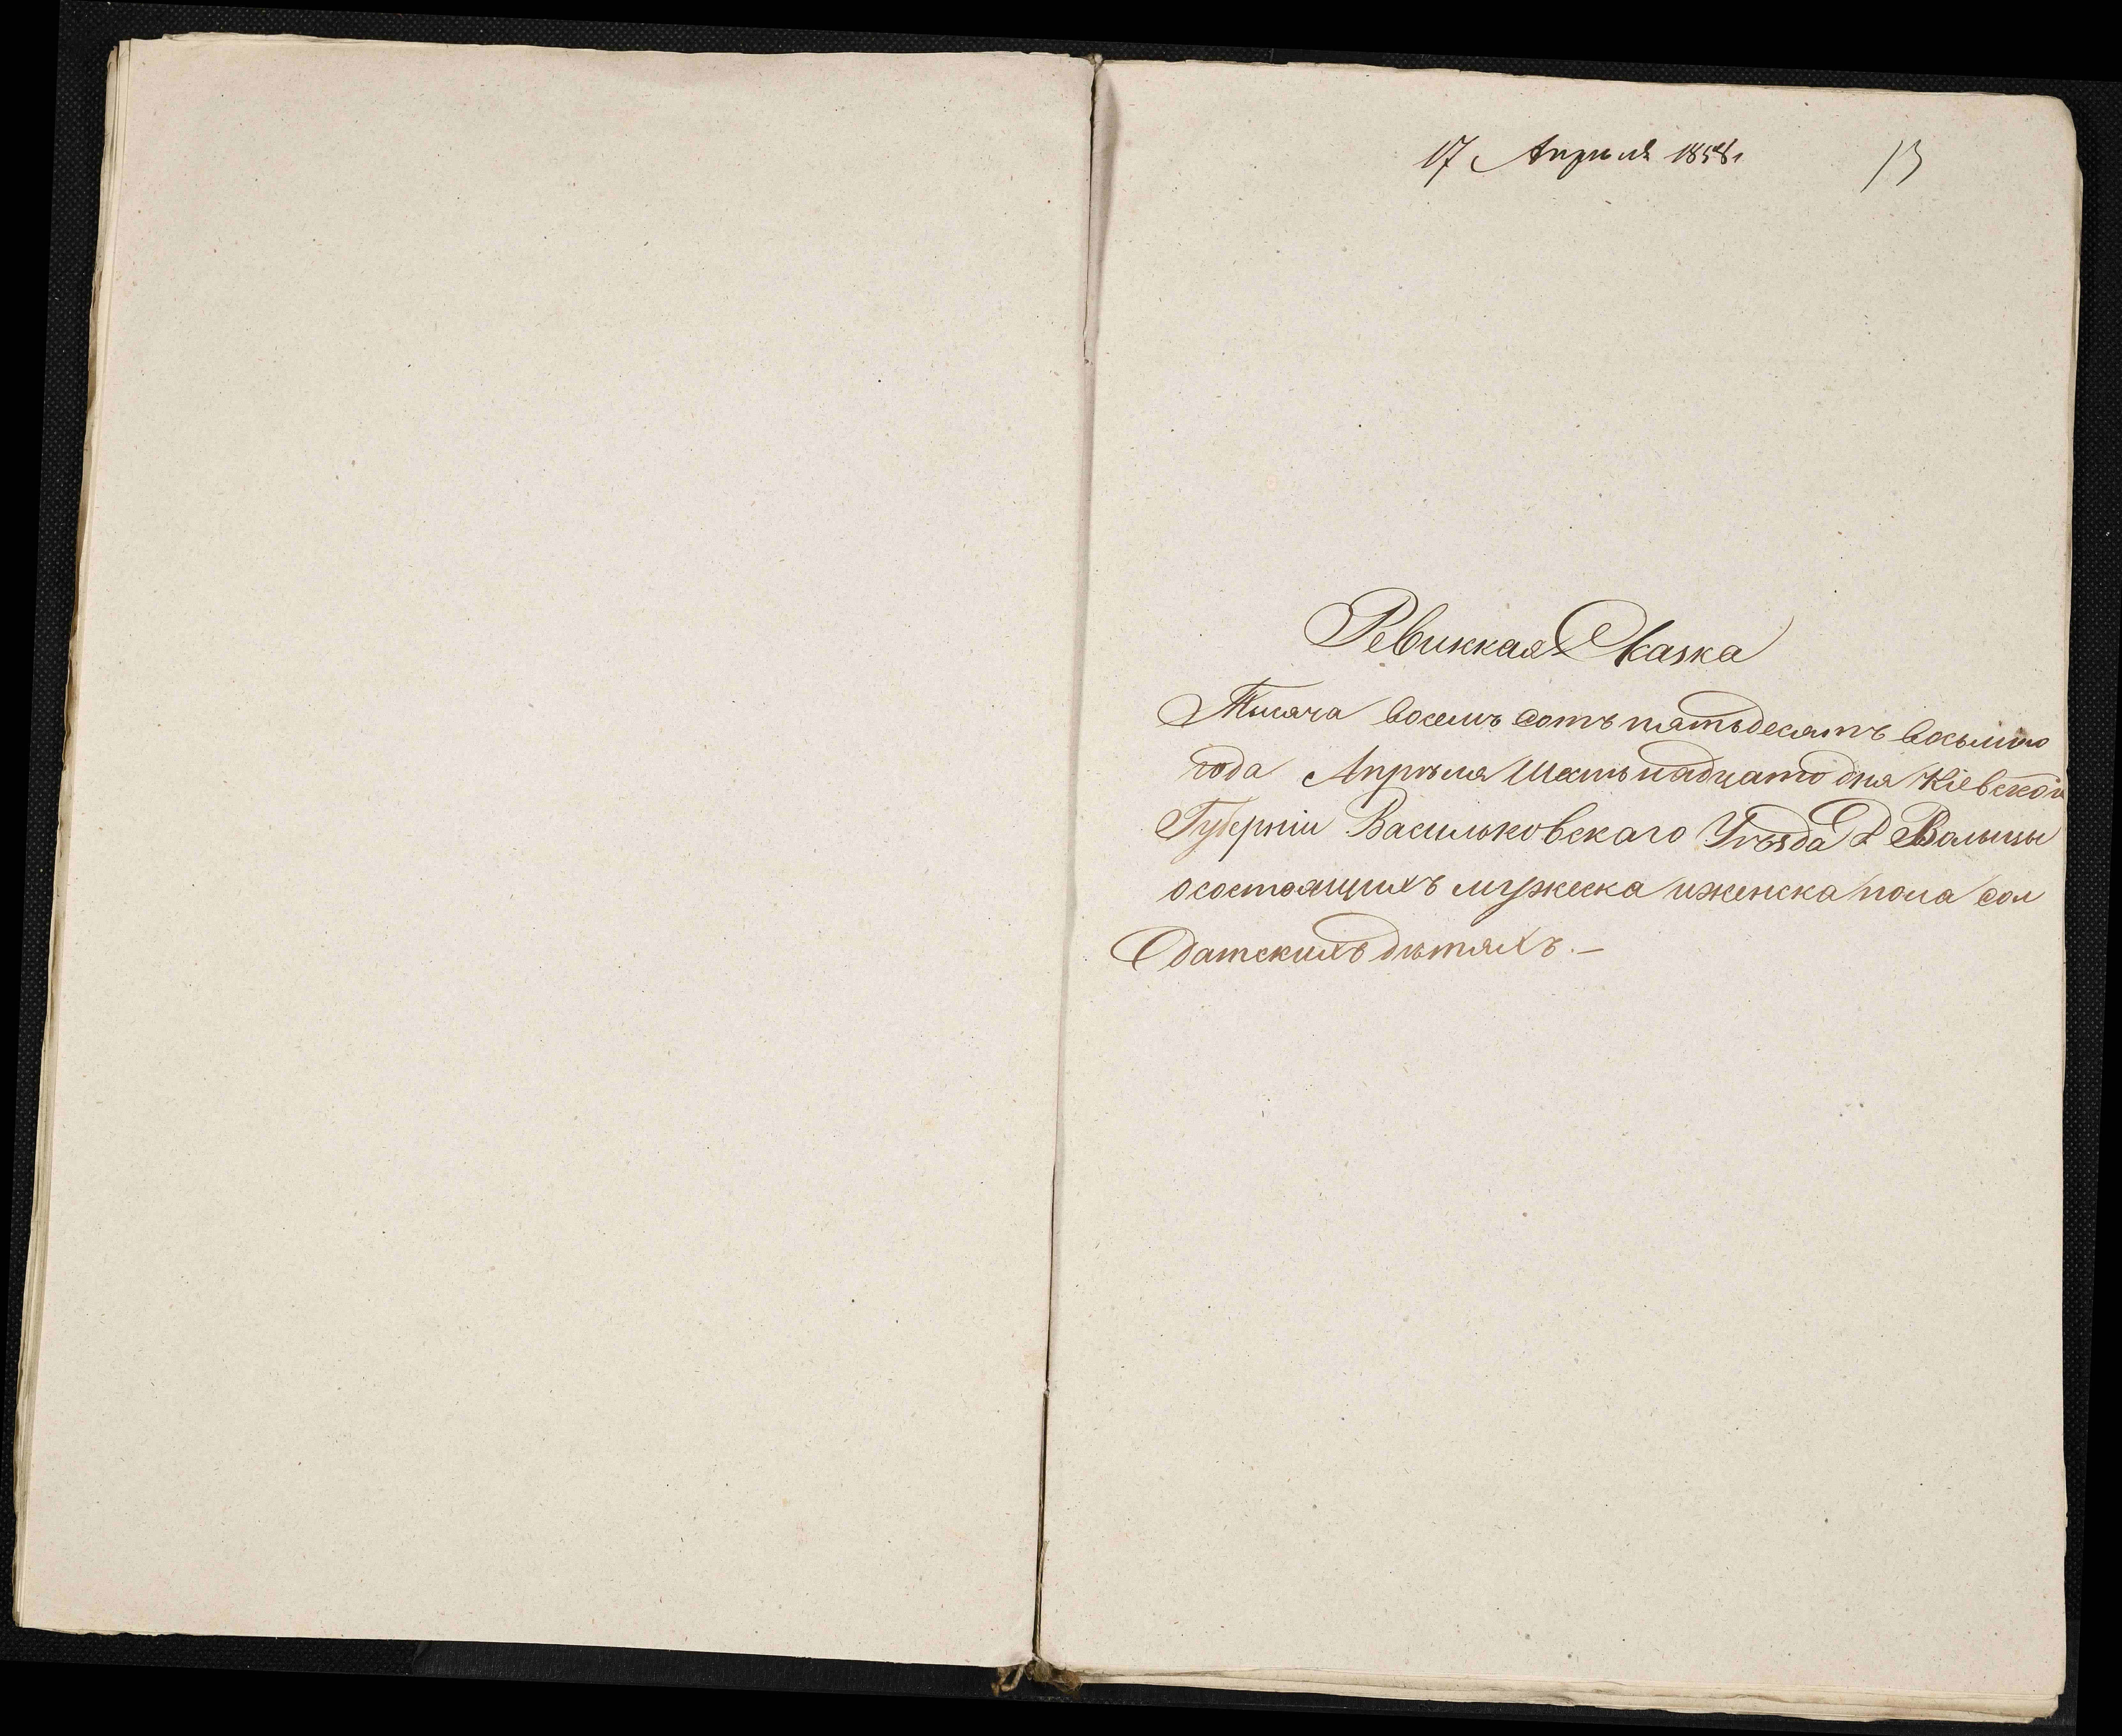 17 Апрѣля 1858 г 13
Ревижкая Сказка
Тысяча восемъ сотъ пятьдесятъ восьмго
года Апрѣля Шестьнадцатго дня Кіевской
Губерніи Васильковскаго Уѣзда Д Волыцы
о состоящихъ мужеска и женска пола сол
датскихъ дѣтяхъ. —